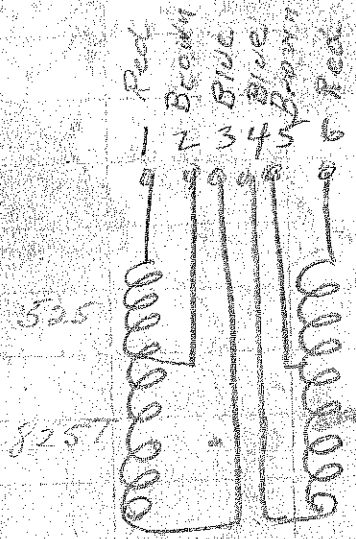 Red Brown Blue Blue Brown Red
1 2 3 4 5 6
525
825T